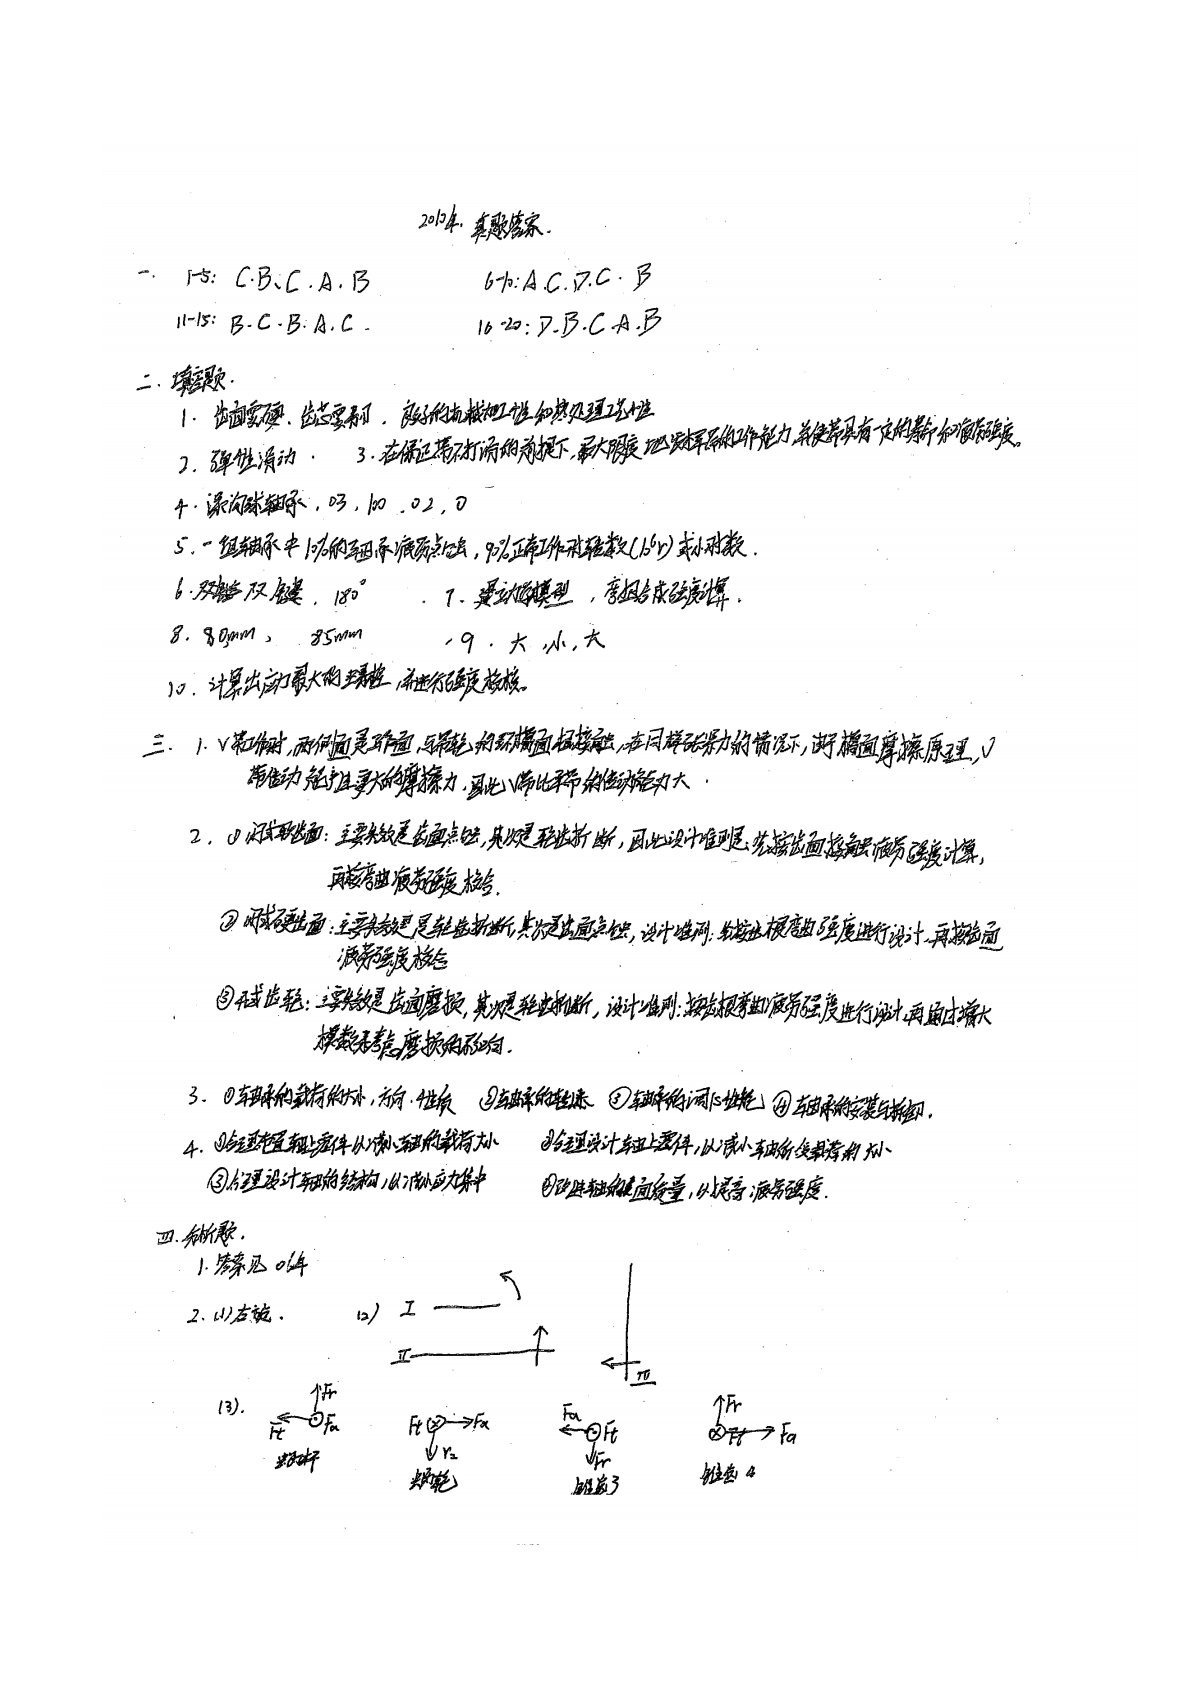 2010年. 真题答案.
一. 1-5: C.B、C.A.B 6-10: A.C.D.C.B
11-15: B.C.B.A.C. 16-20: D.B.C.A.B
二. 填空题.
1. 齿面要硬、齿芯要韧, 良好的机械加工性和热处理工艺性
2. 弹性滑动. 3. 在保证带不打滑的前提下,最大限度地发挥带的工作能力,并使带具有一定的寿命和疲劳强度。
4. 深沟球轴承, 03, 100, 02, 0
5. 一组轴承中10%的轴承疲劳点蚀, 90%正常工作时转数(10⁶r)或小时数.
6. 双键, 180° 7. 建立力学模型, 弯扭合成强度计算.
8. 80mm, 85mm , 9. 大,小,大
10. 计算出应力最大的主螺栓,并进行强度校核。
三. 1. V带工作时,两侧面是工作面,与带轮的环槽面相接触,在同样张紧力的情况下,由于楔面摩擦原理,V
带传动能产生更大的摩擦力,因此V带比平带的传动能力大.
2. ①闭式软齿面: 主要失效是齿面点蚀,其次是轮齿折断,因此设计准则是:先按齿面接触疲劳强度计算,
再按弯曲疲劳强度校合.
②闭式硬齿面: 主要失效是轮齿折断,其次是齿面点蚀,设计准则: 先按齿根弯曲强度进行设计,再按齿面
疲劳强度校合
③开式齿轮: 主要失效是齿面磨损,其次是轮齿折断,设计准则:按齿根弯曲疲劳强度进行设计,再通过增大
模数来考虑磨损的影响.
3. ①轴承的载荷的大小,方向,性质 ②轴承的转速 ③轴承的调心性能 ④轴承的安装与拆卸.
4. ①合理布置轴上零件以减小轴的载荷大小 ②合理设计轴上零件,以减小轴所受载荷的大小
③合理设计轴的结构,以减小应力集中 ④改进轴的表面质量,以提高疲劳强度.
四. 分析题.
1. 答案见06年
2. (1)右旋. (2) I
II III
(3). Fr Ft Fa Ft Fa Fr2 Fa Ft Fr Fr Ft Fa
蜗杆 蜗轮 锥齿3 锥齿4